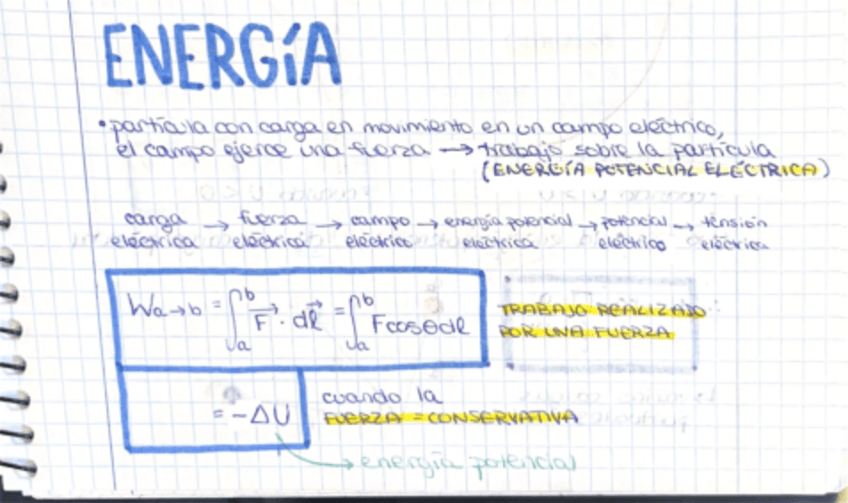 ENERGÍA
• partícula con carga en movimiento en un campo eléctrico,
el campo ejerce una fuerza → trabajo sobre la partícula
(ENERGÍA POTENCIAL ELÉCTRICA)
carga eléctrica → fuerza eléctrica → campo eléctrico → energía potencial eléctrica → potencial eléctrico → tensión eléctrica
Wa→b = ∫ₐᵇ F⃗ · dl⃗ = ∫ₐᵇ Fcosθdl
TRABAJO REALIZADO
POR UNA FUERZA
= -ΔU
cuando la
FUERZA = CONSERVATIVA
→ energía potencial